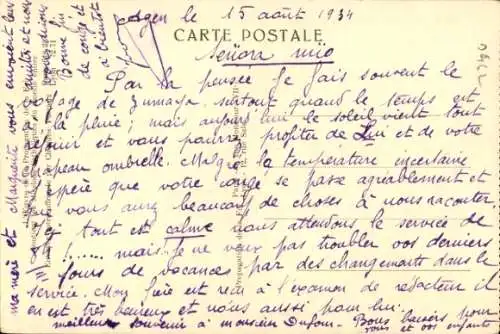 Agen le 15 août 1934
CARTE POSTALE
Señora mio
Par la pensée je fais souvent le
voyage de Zumaya surtout quand le temps est
à la pluie; mais aujourd'hui le soleil vient tout
réjouir et vous pourrez profiter de Lui et de votre
chapeau ombrelle. Malgré la température incertaine
j'espère que votre congé se passe agréablement et
vous aurez beaucoup de choses à nous raconter.
Ici tout est calme nous attendons le service de
!..... mais je ne veux pas troubler vos derniers
jours de vacances par des changements dans le
service. Mon frère est reçu à l'examen de rédacteur il
en est très heureux et nous aussi pour lui.
meilleur souvenir à monsieur Dufour. Bons baisers pour
vous et vos enfants
ma mère et Marguerite vous envoient leur
Bonne fin
de congé et
à bientôt